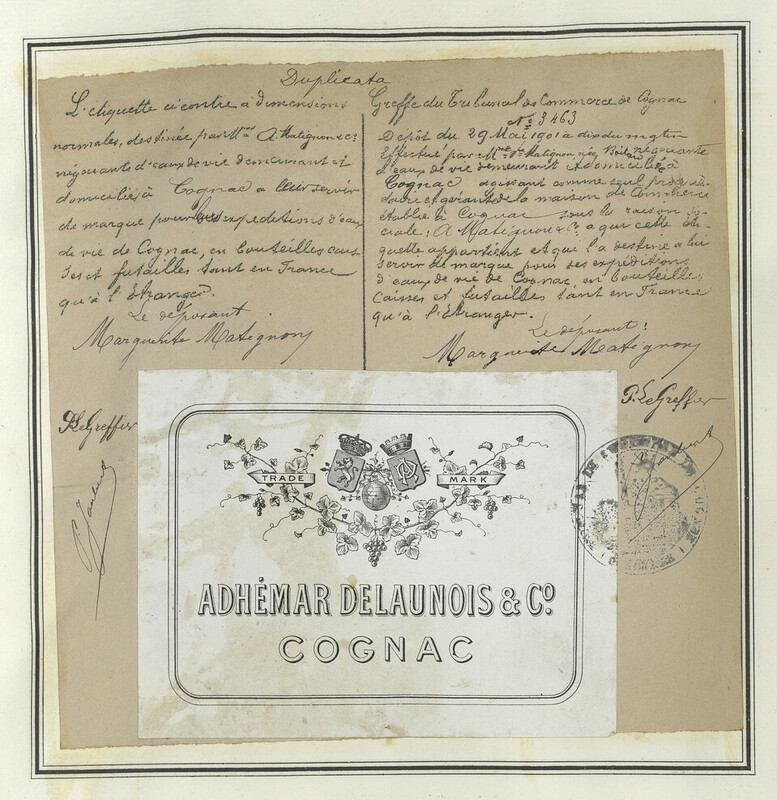 Duplicata
L'etiquette ci contre à dimensions
normales, destinée par Mme A. Matignon & Ce
négociants d'eaux de vie demeurant et
domiciliés à Cognac a leur servir
de marque pour les expeditions d'eaux
de vie de Cognac, en bouteilles cais
ses et futailles tant en France
qu'à l'Etranger.
Le déposant
Marguerite Matignon
P. Le Greffier
Greffe du Tribunal de Commerce de Cognac
No 3463
Dépôt du 29 Mai 1901 à dix du matin
Effectué par Mme Vve Matignon née négociante
d'eaux de vie demeurant & domiciliée à
Cognac agissant comme seul propriè-
taire et gérante de la maison de Commerce
établie à Cognac sous la raison so-
ciale: A Matignon & Co a qui cette éti-
quette appartient et qui l'a destine a lui
servir de marque pour ses expéditions
d'eaux de vie de Cognac, en bouteilles
caisses et futailles tant en France
qu'à l'Etranger.
Le déposant:
Marguerite Matignon
P. Le Greffier
TRADE MARK
ADHÉMAR DELAUNOIS & Co
COGNAC